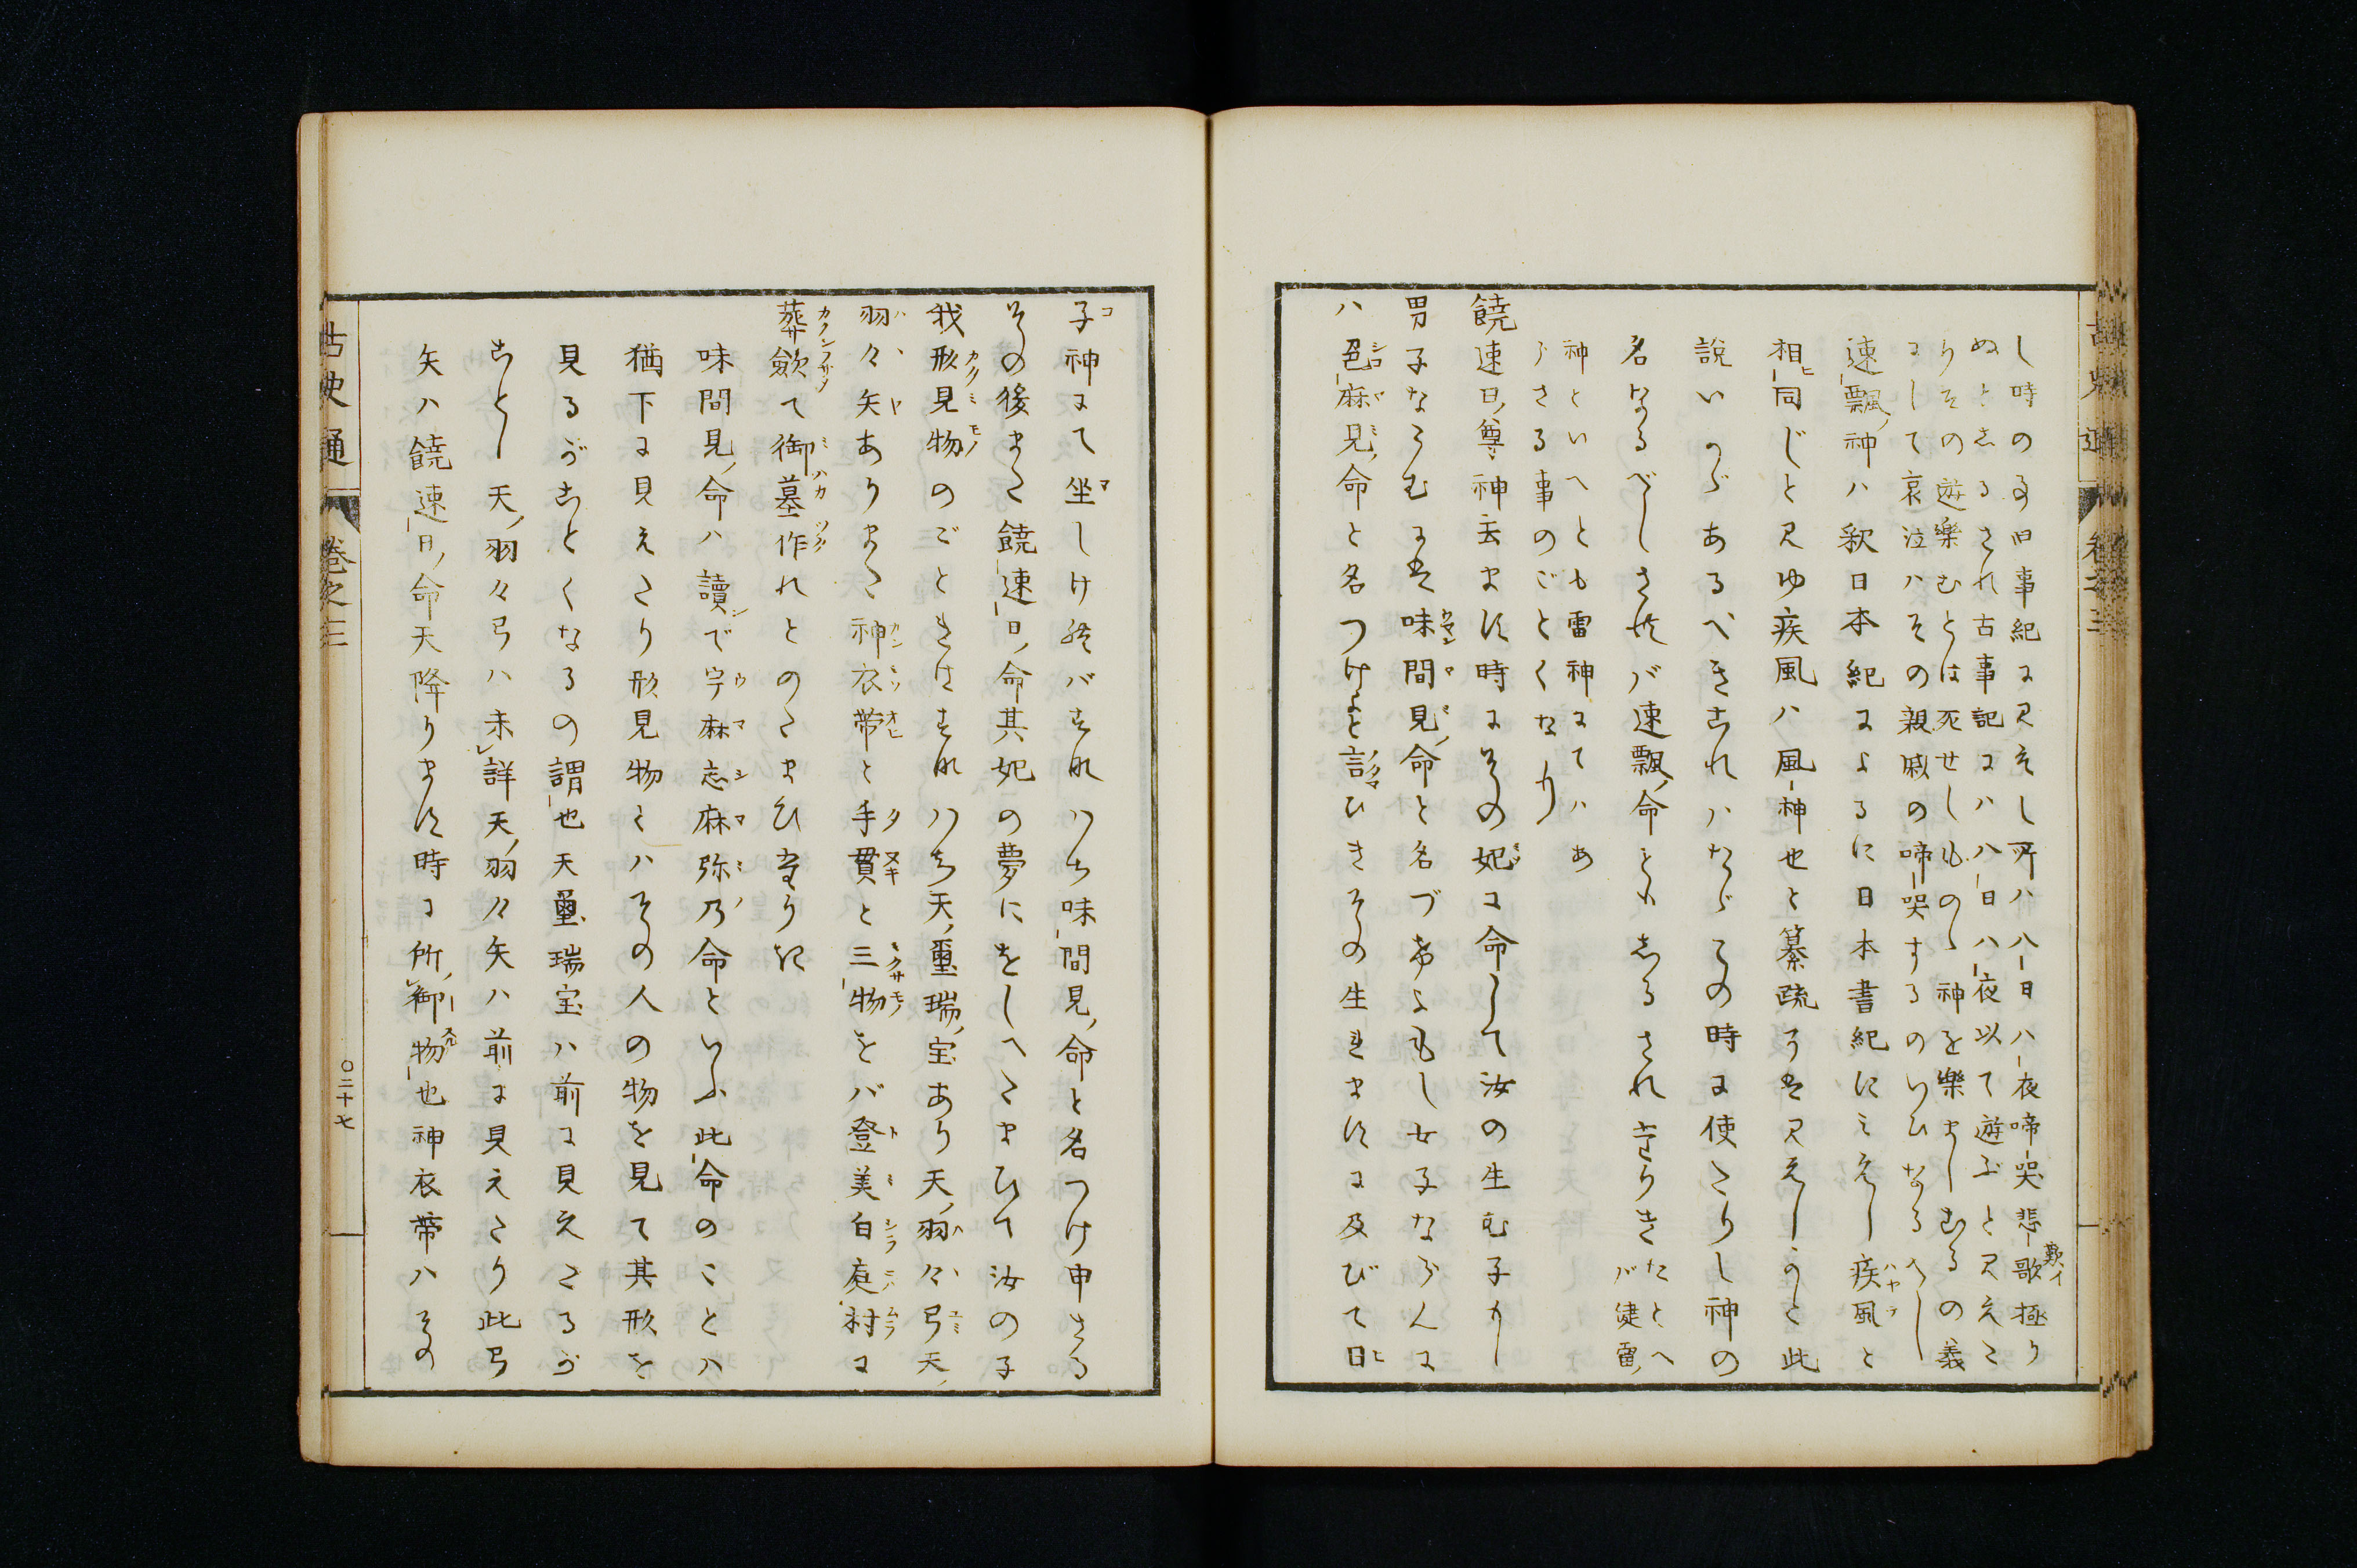 し時の事旧事紀に見えし所ハ八日八夜啼哭悲歌極り
歎イ
ぬとしるされ古事記にハ八日八夜以て遊ぶと見えた
りその遊樂むとは死せしものゝ神を樂ましむるの義
にして哀泣ハその親戚の啼哭するのいひなるへし
速飄神ハ釈日本紀によるに日本書紀にみえし疾風と
相同じと見ゆ疾風ハ風神也と纂疏にも見えしかと此
説いかゞあるべきこれハなをこの時に使たりし神の
名なるべしされバ速飄命ともしるされたりきたとへバ健雷
神といへとも雷神にてハあらさる事のごとくなり
饒速日尊神去ます時にその妃に命して汝の生む子もし
男子ならむには味間見命と名づけよもし女子ならんに
ハ色麻見命と名つけよと詔ひきその生ますに及びて日
子神にて坐しけれバすなハち味間見命と名つけ申さる
その後また饒速日命其妃の夢にをしへたまひて汝の子
我形見物のごときはすなハち天璽瑞宝あり天羽々弓天
羽々矢ありまた神衣帯と手貫と三物をバ登美白庭村に
葬歛て御墓作れとのたまひたりき
味間見命ハ讀で宇麻志麻弥乃命といふ此命のことハ
猶下に見えたり形見物とハその人の物を見て其形を
見るがことくなるの謂也天璽瑞宝ハ前に見えたるが
ことし天羽々弓ハ未詳天羽々矢ハ前に見えたり此弓
矢ハ饒速日命天降ります時に所御物也神衣帯ハその
古史通
巻之三
〇二十七